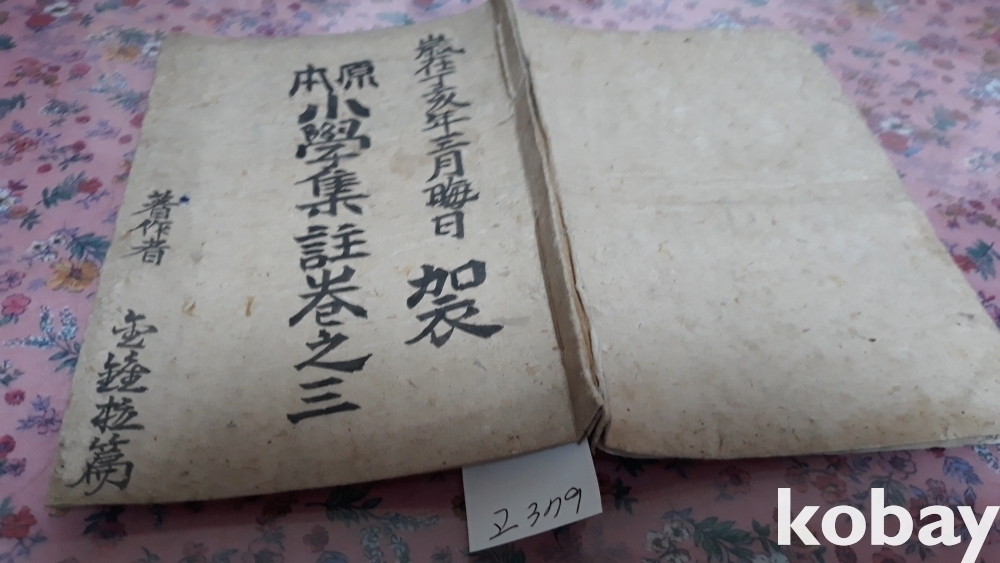 歲在丁亥年三月晦日 加衣
原本小學集註卷之三
著作者 金鐘
고 379
kobay